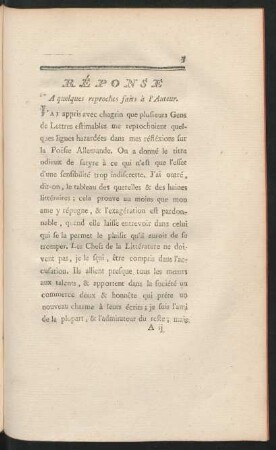 RÉPONSE
A quelques reproches faits à l'Auteur.
J'AI appris avec chagrin que plusieurs Gens
de Lettres estimables me reprochoient quel-
ques lignes hazardées dans mes réfléxions sur
la Poésie Allemande. On a donné le titre
odieux de satyre à ce qui n'est que l'effet
d'une sensibilité trop indiscrette. J'ai outré,
dit-on, le tableau des querelles & des haines
littéraires; cela prouve au moins que mon
ame y répugne, & l'exagération est pardon-
nable, quand elle laisse entrevoir dans celui
qui se la permet le plaisir qu'il auroit de se
tromper. Les Chefs de la Littérature ne doi-
vent pas, je le sçai, être compris dans l'ac-
cusation. Ils allient presque tous les mœurs
aux talens, & apportent dans la société un
commerce doux & honnête qui prête un
nouveau charme à leurs écrits; je suis l'ami
de la plupart, & l'admirateur du reste; mais
A ij